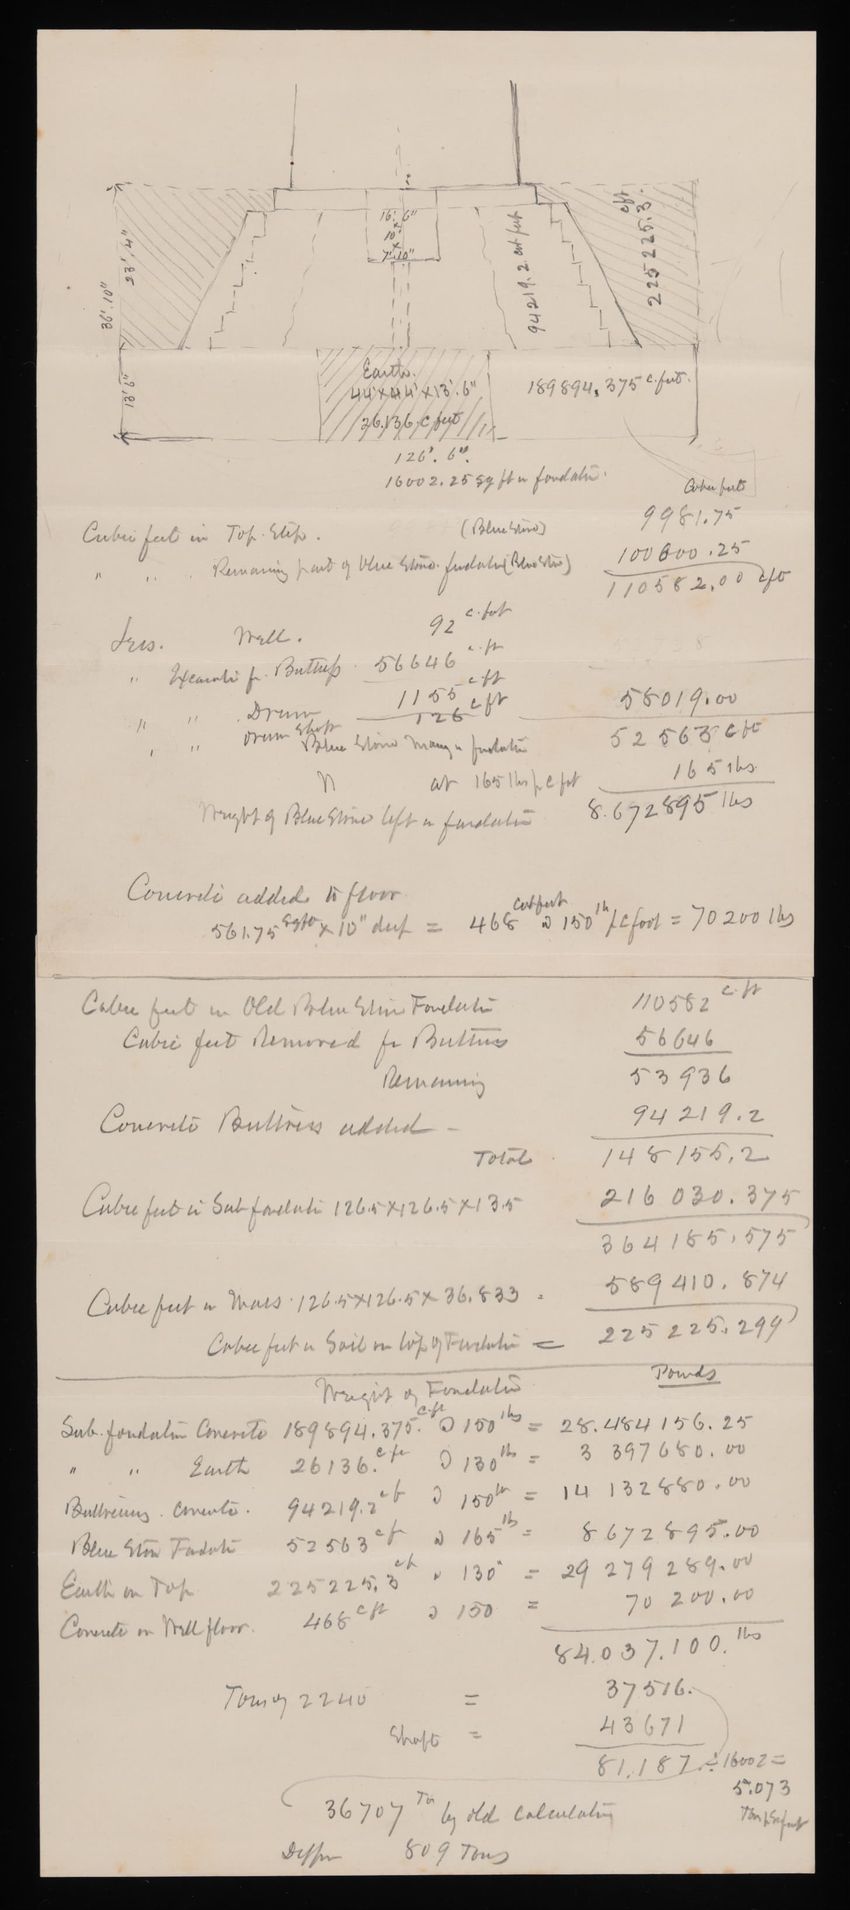 16'. 6"
x
10'
x
7'. 10"
94219.2 cub feet
225225.3. cft
23'.4"
36'.10"
13'.6"
Earth.
44' x 44' x 13'. 6"
26.136. c feet
189894.375 c. feet.
126'. 6".
16002.25 sq ft in fondatin.
Cubic feet
Cubic feet in Top. Step. (Blue Stone) 9981.75
" " Remaining part of blue stone fundatin (Blue Stone) 100600.25
110582.00 cft
Less. Well. 92 c. feet
" Excavatin for Buttress. 56646 c. ft
" " Drum 1155 c ft 58019.00
" " Drum Shaft 126 c ft
Blue Stone in fundatin 52563 c ft
" at 165 lbs p c foot 165 lbs
Weight of Blue Stone left in fundatin 8.672895 lbs
Concrete added to floor
561.75 sq ft x 10" deep = 468 cub feet @ 150 lb p c foot = 70200 lbs
Cubic feet in Old Blue Stone Fondatin 110582 c. ft
Cubic feet Removed for Buttress 56646
Remaining 53936
Concrete Buttress added - 94219.2
Total 148155.2
Cubic feet in Sub fondatin 126.5 x 126.5 x 13.5 216030.375
364185.575
Cubic feet in Mass. 126.5 x 126.5 x 36.833 = 589410.874
Cubic feet in Soil on top of Fundatin = 225225.299
Weight of Fondatin Pounds
Sub. fondatin Concrete 189894.375 c. ft @ 150 lbs = 28.484156.25
" " Earth 26136. c ft @ 130 lbs = 3 397680.00
Buttresses. concrete. 94219.2 c f @ 150 lb = 14 132880.00
Blue Stone Fundatin 52563 c f @ 165 lbs = 8672895.00
Earth on Top 225225.3 c ft " 130 " = 29 279289.00
Concrete on Well floor. 468 c ft @ 150 = 70 200.00
84.037.100. lbs
Tons of 2240 = 37516.
Shaft = 43671
81.187. ÷ 16002 =
5.073
Tons p sq foot
36707 Ton by old Calculatin
Differ 809 Tons